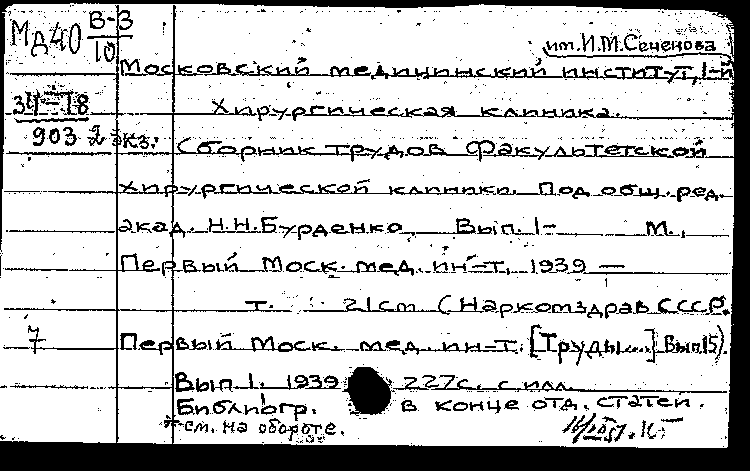 Мд40 В-3
10
им. И.М.Сеченова
Московский медицинский институт, 1-й
34-18
903 2 экз.
Хирургическая клиника.
Сборник трудов Факультетской
хирургической клиники. Под общ. ред.
акад. Н.Н.Бурденко. Вып. 1- М.,
Первый Моск. мед. ин-т, 1939 —
т. 21cm (Наркомздрав СССР.
7 Первый Моск. мед. ин-т. [Труды...] Вып.15).
Вып. 1. 1939 227с. с илл.
Библиогр. в конце отд. статей.
* см. на обороте.